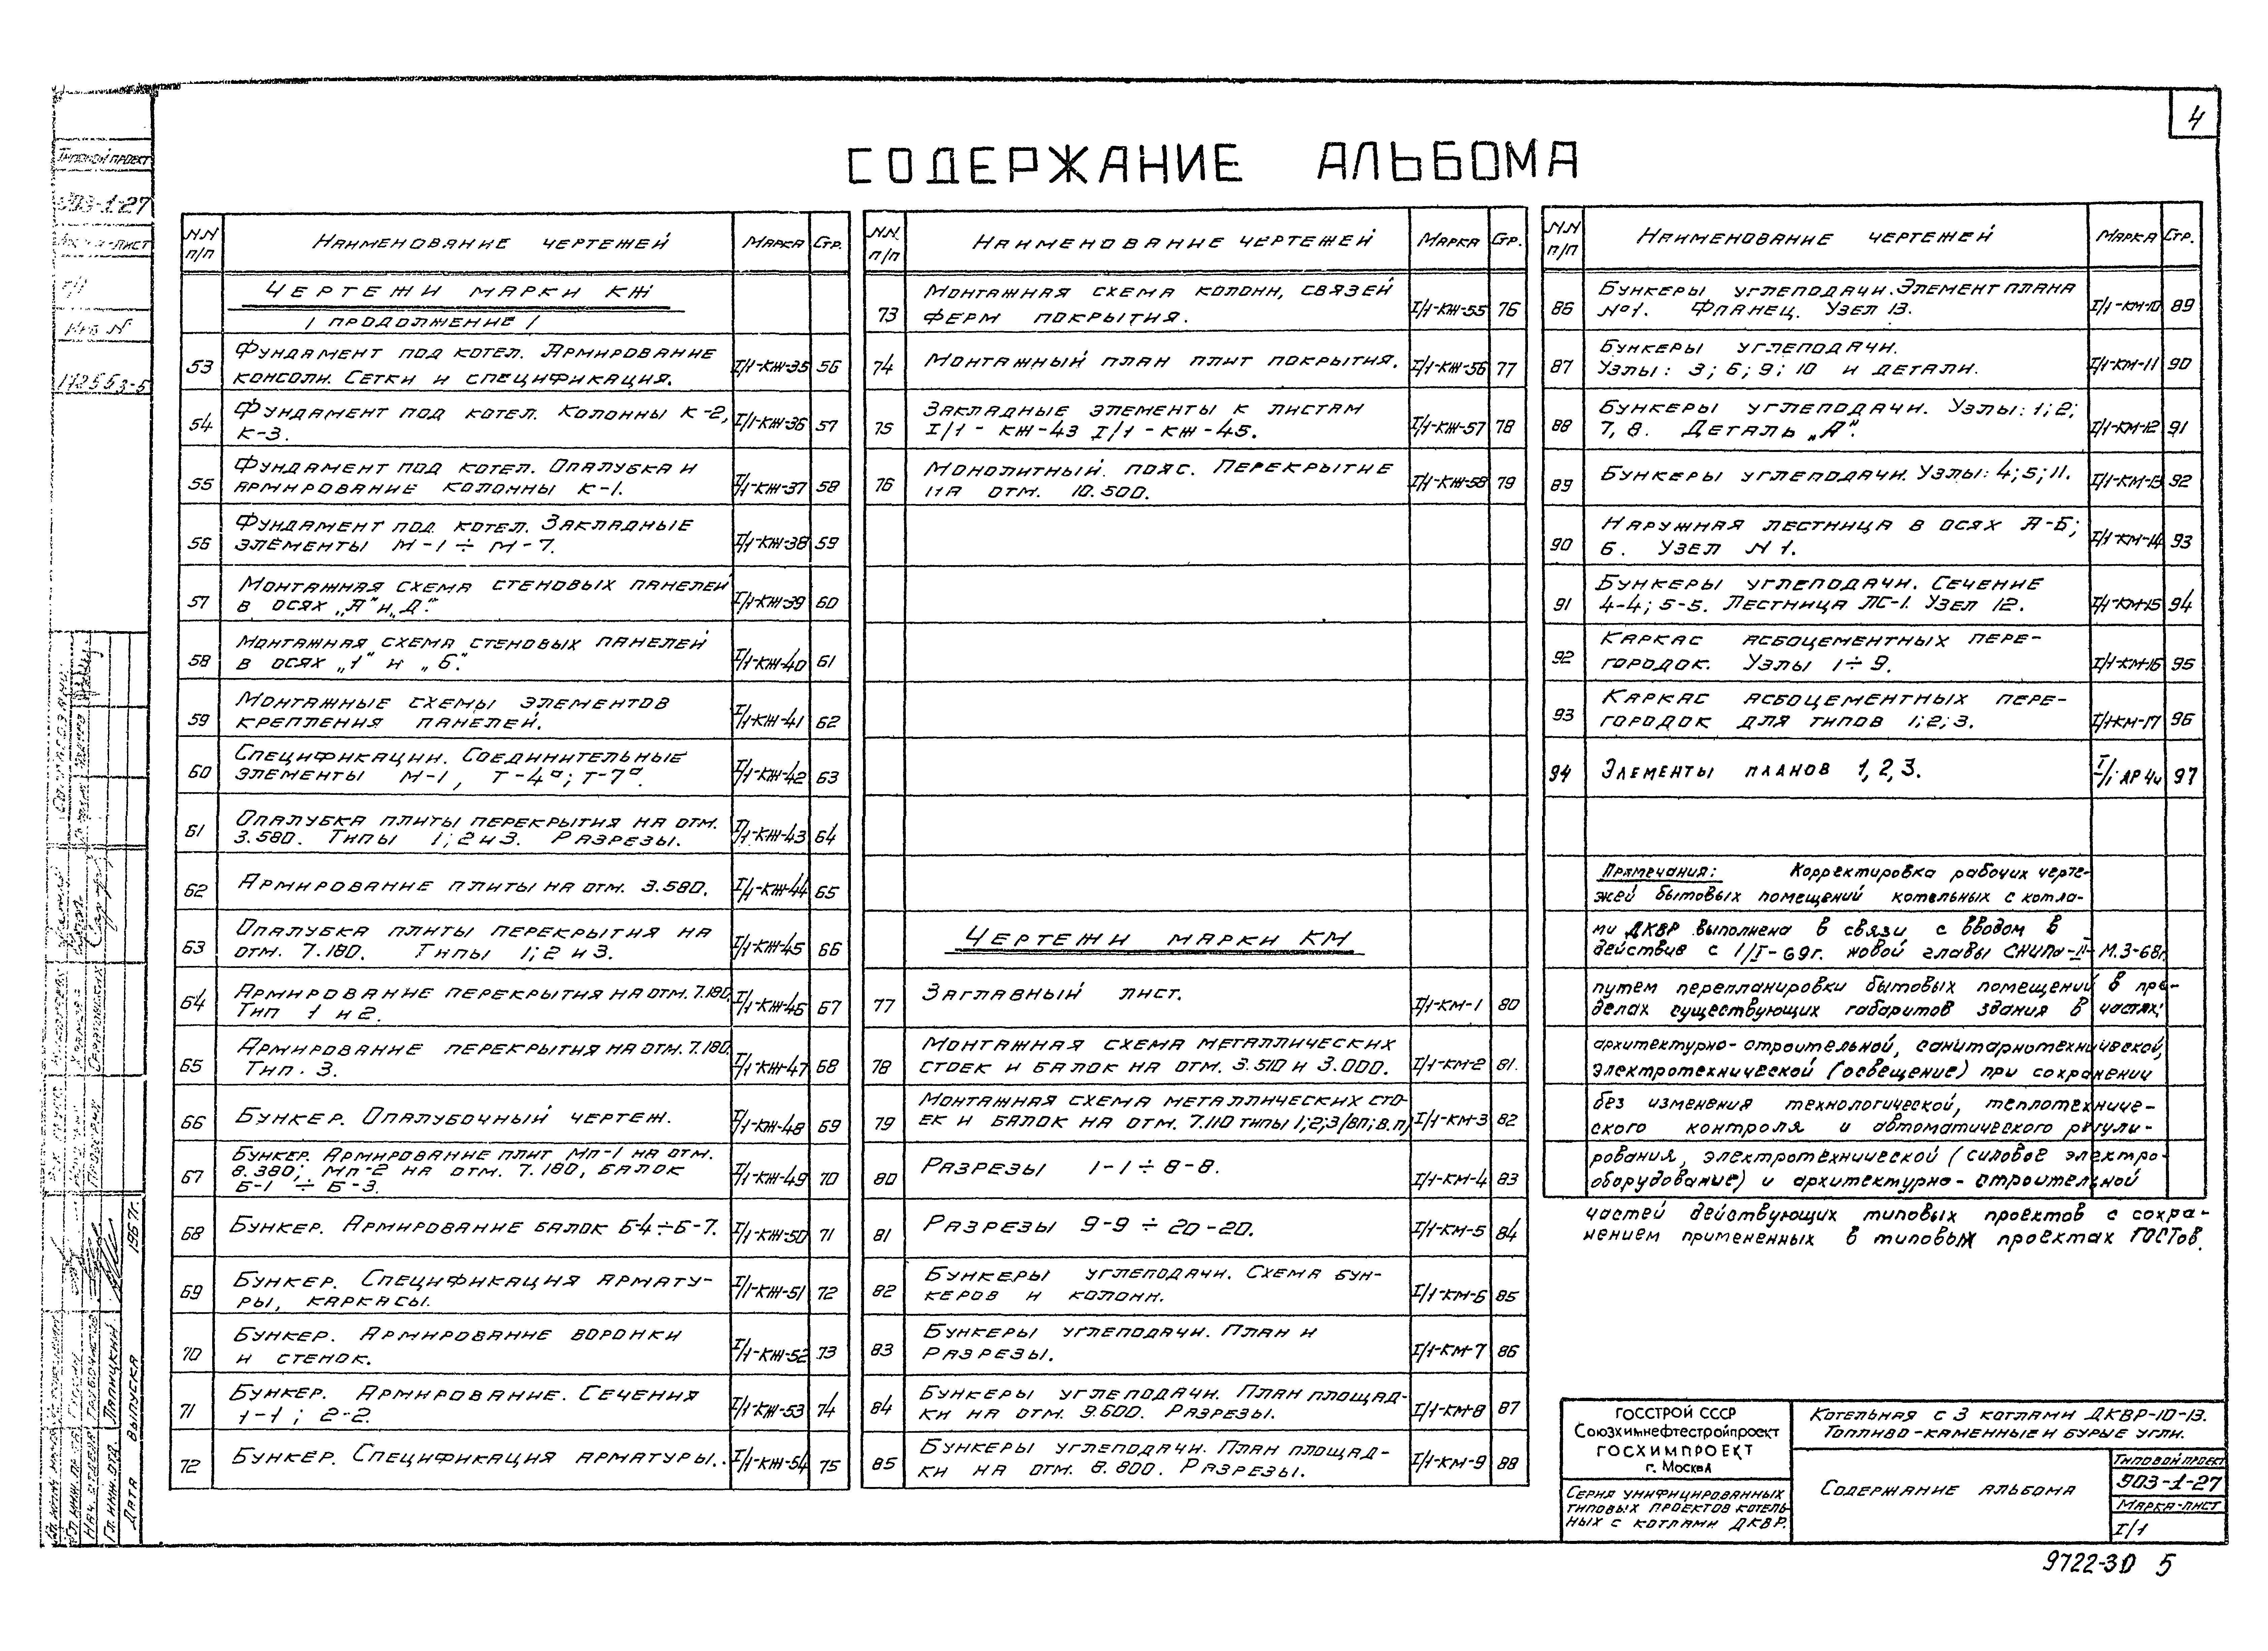 4
СОДЕРЖАНИЕ АЛЬБОМА
Типовой проект
903-1-27
Марка-лист
I/1
Инв. N
N.N п/п Наименование чертежей Марка Стр.
Чертежи марки КЖ
/ продолжение /
53 Фундамент под котел. Армирование консоли. Сетки и спецификация. I/1-КЖ-35 56
54 Фундамент под котел. Колонны К-2, К-3. I/1-КЖ-36 57
55 Фундамент под котел. Опалубка и армирование колонны К-1. I/1-КЖ-37 58
56 Фундамент под котел. Закладные элементы М-1÷М-7. I/1-КЖ-38 59
57 Монтажная схема стеновых панелей в осях „А" и „Д". I/1-КЖ-39 60
58 Монтажная схема стеновых панелей в осях „1" и „6". I/1-КЖ-40 61
59 Монтажные схемы элементов крепления панелей. I/1-КЖ-41 62
60 Спецификации. Соединительные элементы М-1, Т-4а; Т-7а. I/1-КЖ-42 63
61 Опалубка плиты перекрытия на отм. 3.580. Типы 1; 2 и 3. Разрезы. I/1-КЖ-43 64
62 Армирование плиты на отм. 3.580. I/1-КЖ-44 65
63 Опалубка плиты перекрытия на отм. 7.180. Типы 1; 2 и 3. I/1-КЖ-45 66
64 Армирование перекрытия на отм. 7.180. Тип 1 и 2. I/1-КЖ-46 67
65 Армирование перекрытия на отм. 7.180. Тип. 3. I/1-КЖ-47 68
66 Бункер. Опалубочный чертеж. I/1-КЖ-48 69
67 Бункер. Армирование плит Мп-1 на отм. 8.380; Мп-2 на отм. 7.180, балок Б-1 ÷ Б-3. I/1-КЖ-49 70
68 Бункер. Армирование балок Б-4÷Б-7. I/1-КЖ-50 71
69 Бункер. Спецификация арматуры, каркасы. I/1-КЖ-51 72
70 Бункер. Армирование воронки и стенок. I/1-КЖ-52 73
71 Бункер. Армирование. Сечения 1-1; 2-2. I/1-КЖ-53 74
72 Бункер. Спецификация арматуры. I/1-КЖ-54 75
N.N. п/п Наименование чертежей Марка Стр.
73 Монтажная схема колонн, связей ферм покрытия. I/1-КЖ-55 76
74 Монтажный план плит покрытия. I/1-КЖ-56 77
75 Закладные элементы к листам I/1-КЖ-43 I/1-КЖ-45. I/1-КЖ-57 78
76 Монолитный пояс. Перекрытие на отм. 10.500. I/1-КЖ-58 79
Чертежи марки КМ
77 Заглавный лист. I/1-КМ-1 80
78 Монтажная схема металлических стоек и балок на отм. 3.510 и 3.000. I/1-КМ-2 81.
79 Монтажная схема металлических стоек и балок на отм. 7.110 типы 1;2;3/вп; в.п/ I/1-КМ-3 82
80 Разрезы 1-1÷8-8. I/1-КМ-4 83
81 Разрезы 9-9÷20-20. I/1-КМ-5 84
82 Бункеры углеподачи. Схема бункеров и колонн. I/1-КМ-6 85
83 Бункеры углеподачи. План и разрезы. I/1-КМ-7 86
84 Бункеры углеподачи. План площадки на отм. 9.600. Разрезы. I/1-КМ-8 87
85 Бункеры углеподачи. План площадки на отм. 8.800. Разрезы. I/1-КМ-9 88
N.N п/п Наименование чертежей Марка Стр.
86 Бункеры углеподачи. Элемент плана №1. Фланец. Узел 13. I/1-КМ-10 89
87 Бункеры углеподачи. Узлы: 3; 6; 9; 10 и детали. I/1-КМ-11 90
88 Бункеры углеподачи. Узлы: 1; 2; 7, 8. Деталь „А". I/1-КМ-12 91
89 Бункеры углеподачи. Узлы: 4; 5; 11. I/1-КМ-13 92
90 Наружная лестница в осях А-Б; 6. Узел N 1. I/1-КМ-14 93
91 Бункеры углеподачи. Сечение 4-4; 5-5. Лестница ЛС-1. Узел 12. I/1-КМ-15 94
92 Каркас асбоцементных перегородок. Узлы 1÷9. I/1-КМ-16 95
93 Каркас асбоцементных перегородок для типов 1; 2; 3. I/1-КМ-17 96
94 Элементы планов 1, 2, 3. I/1; АР 4и 97
Примечания: Корректировка рабочих черте-
жей бытовых помещений котельных с котла-
ми ДКВР выполнена в связи с вводом в
действие с 1/I-69г. новой главы СНИПа-II-М.3-68г.
путем перепланировки бытовых помещений в пре-
делах существующих габаритов здания в частях:
архитектурно-строительной, санитарнотехнической,
электротехнической (освещение) при сохранении
без изменения технологической, теплотехниче-
ского контроля и автоматического регули-
рования, электротехнической (силовое электро-
оборудование) и архитектурно-строительной
частей действующих типовых проектов с сохра-
нением примененных в типовых проектах ГОСТов.
ГОССТРОЙ СССР
Союзхимнефтестройпроект
ГОСХИМПРОЕКТ
г. Москва
Серия унифицированных
типовых проектов котель-
ных с котлами ДКВР.
Котельная с 3 котлами ДКВР-10-13.
Топливо-каменные и бурые угли.
Содержание альбома
Типовой проект
903-1-27
Марка-лист
I/1
Лапицкий
Дата выпуска 1967г.
9722-30 5